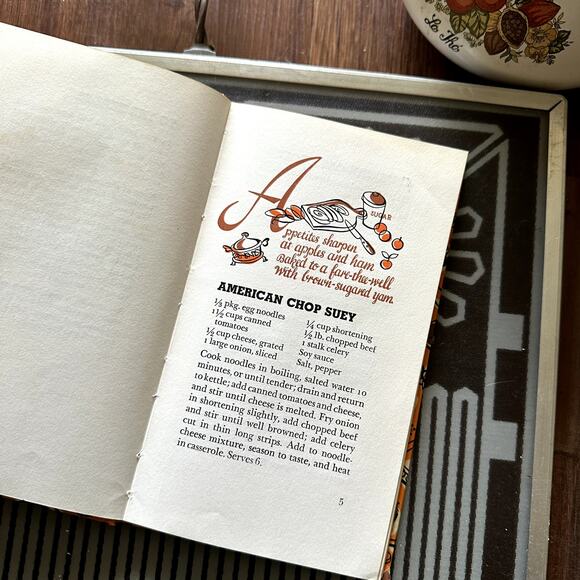 Le Thé
SUGAR
Appetites sharpen
at apples and ham
Baked to a fare-thee-well
With brown-sugared yam.
AMERICAN CHOP SUEY
⅓ pkg. egg noodles
1½ cups canned
tomatoes
½ cup cheese, grated
1 large onion, sliced
¼ cup shortening
½ lb. chopped beef
1 stalk celery
Soy sauce
Salt, pepper
Cook noodles in boiling, salted water 10
minutes, or until tender; drain and return
to kettle; add canned tomatoes and cheese,
and stir until cheese is melted. Fry onion
in shortening slightly, add chopped beef
and stir until well browned; add celery
cut in thin long strips. Add to noodle-
cheese mixture, season to taste, and heat
in casserole. Serves 6.
5